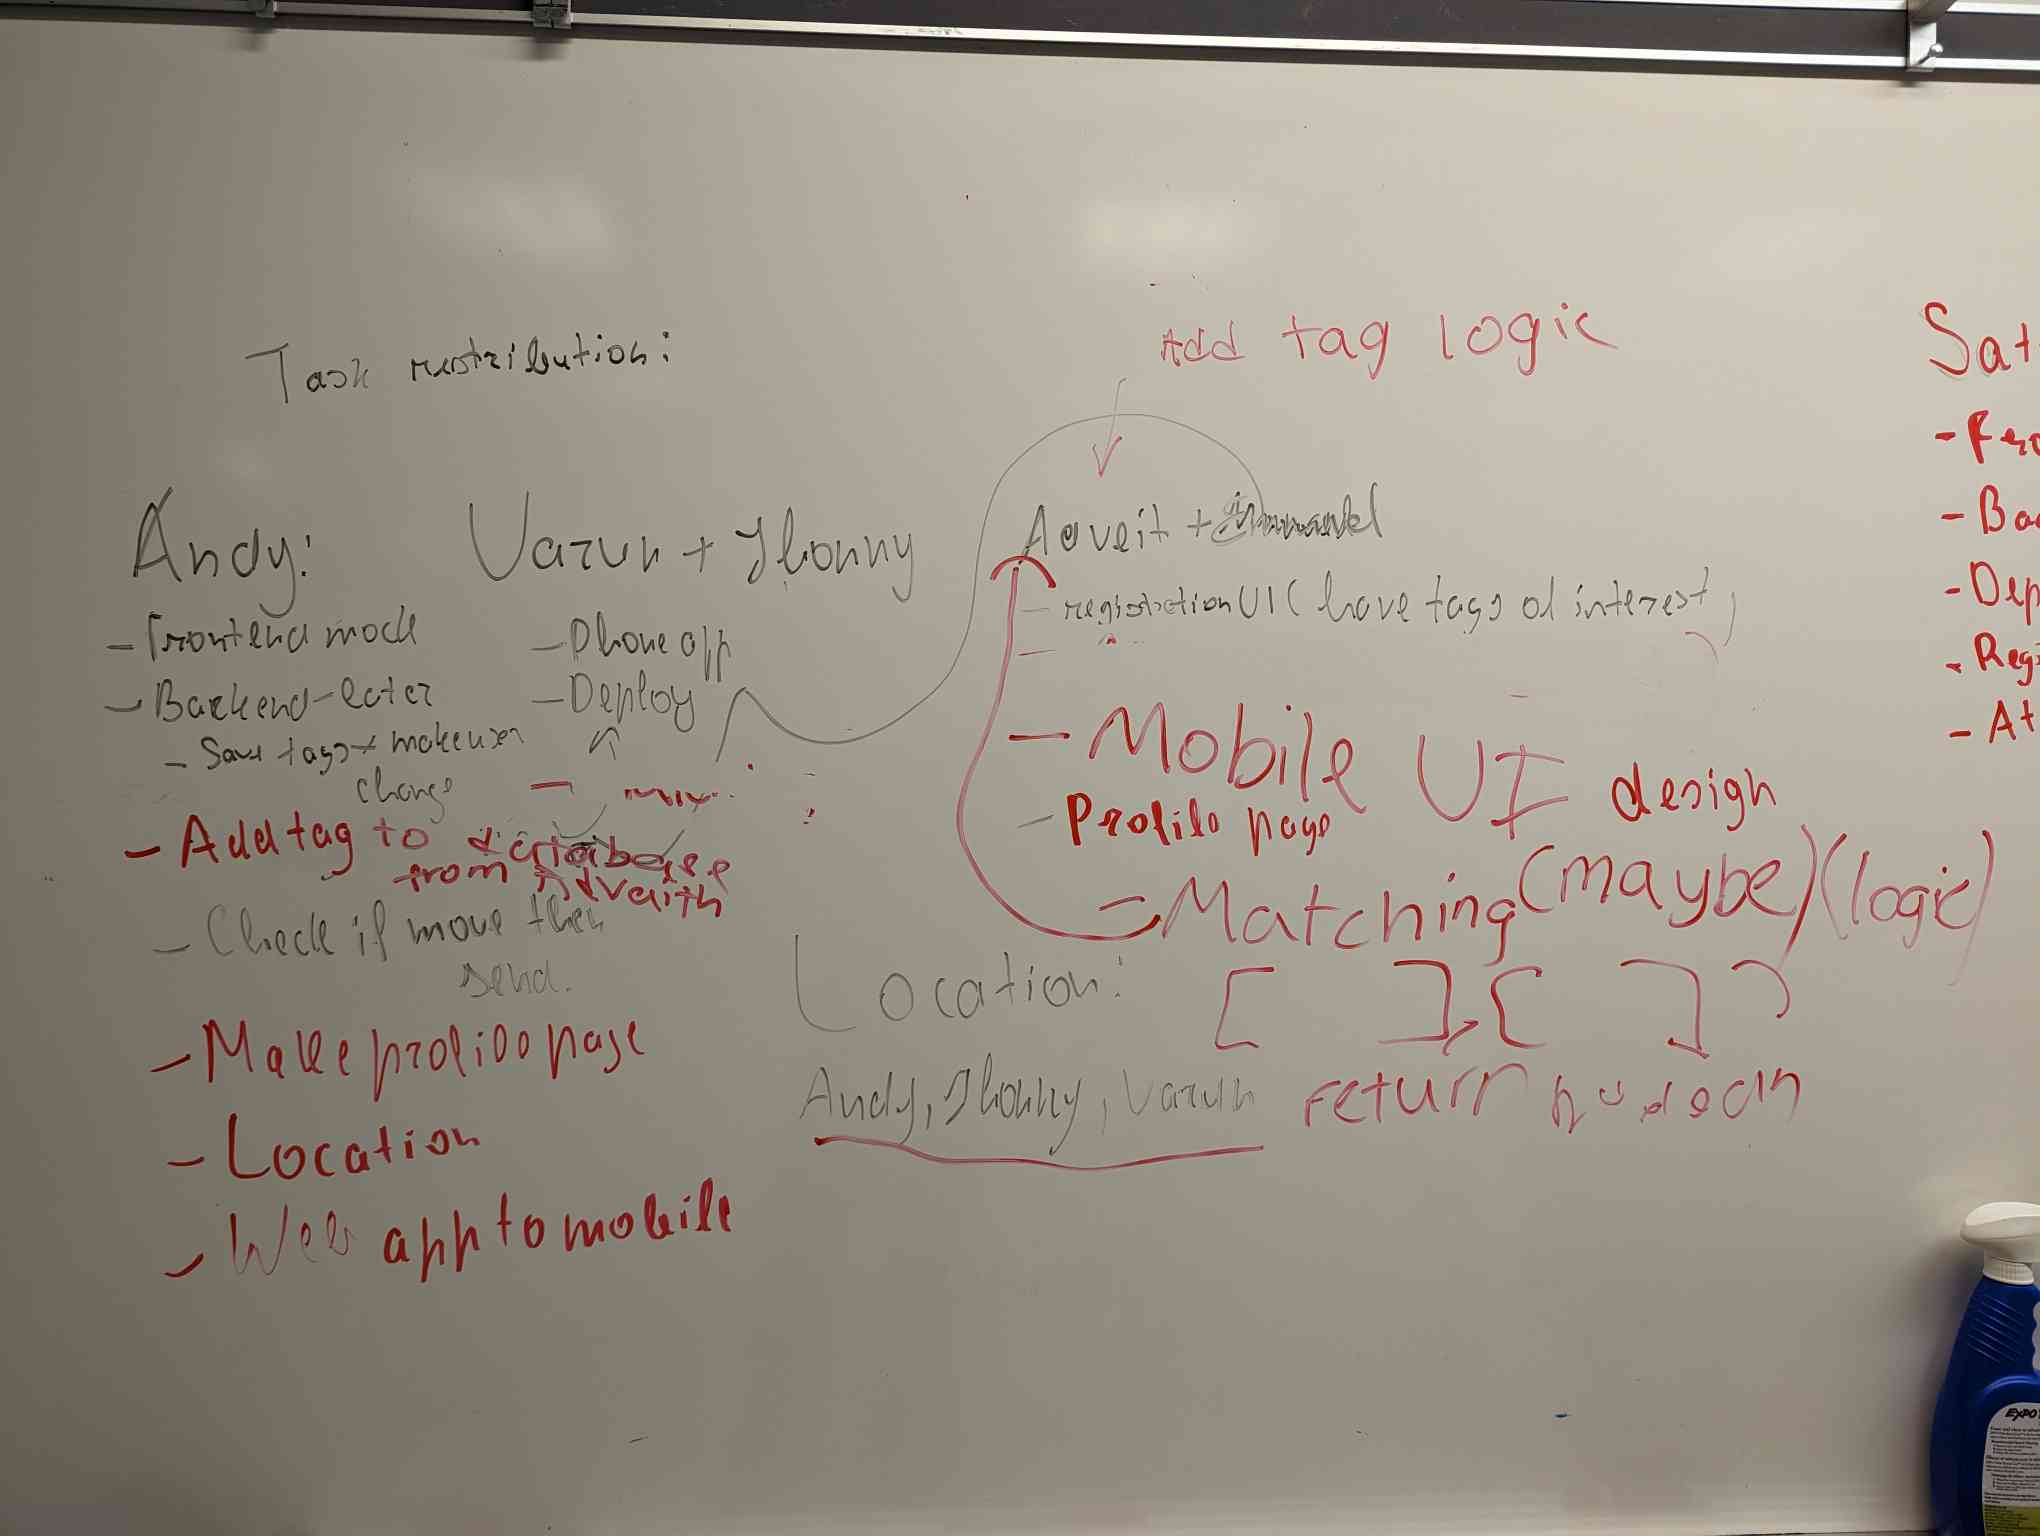 Task restribution:
Add tag logic
Andy:
- Frontend mock
- Backend-later
- Save tags + make user
change
- Add tag to database
from Adveith
- Check if move then
send.
- Make profile page
- Location
- Web app to mobile
Varun + Jhonny
- Phone app
- Deploy
Adveit +
- registration UI ( have tags of interest )
- Mobile UI design
- Profile page
- Matching (maybe) (logic)
Location: [ ], [ ] )
Andy, Jhonny, Varun return
Sat
- Fro
- Bac
- Dep
- Regi
- At
EXPO